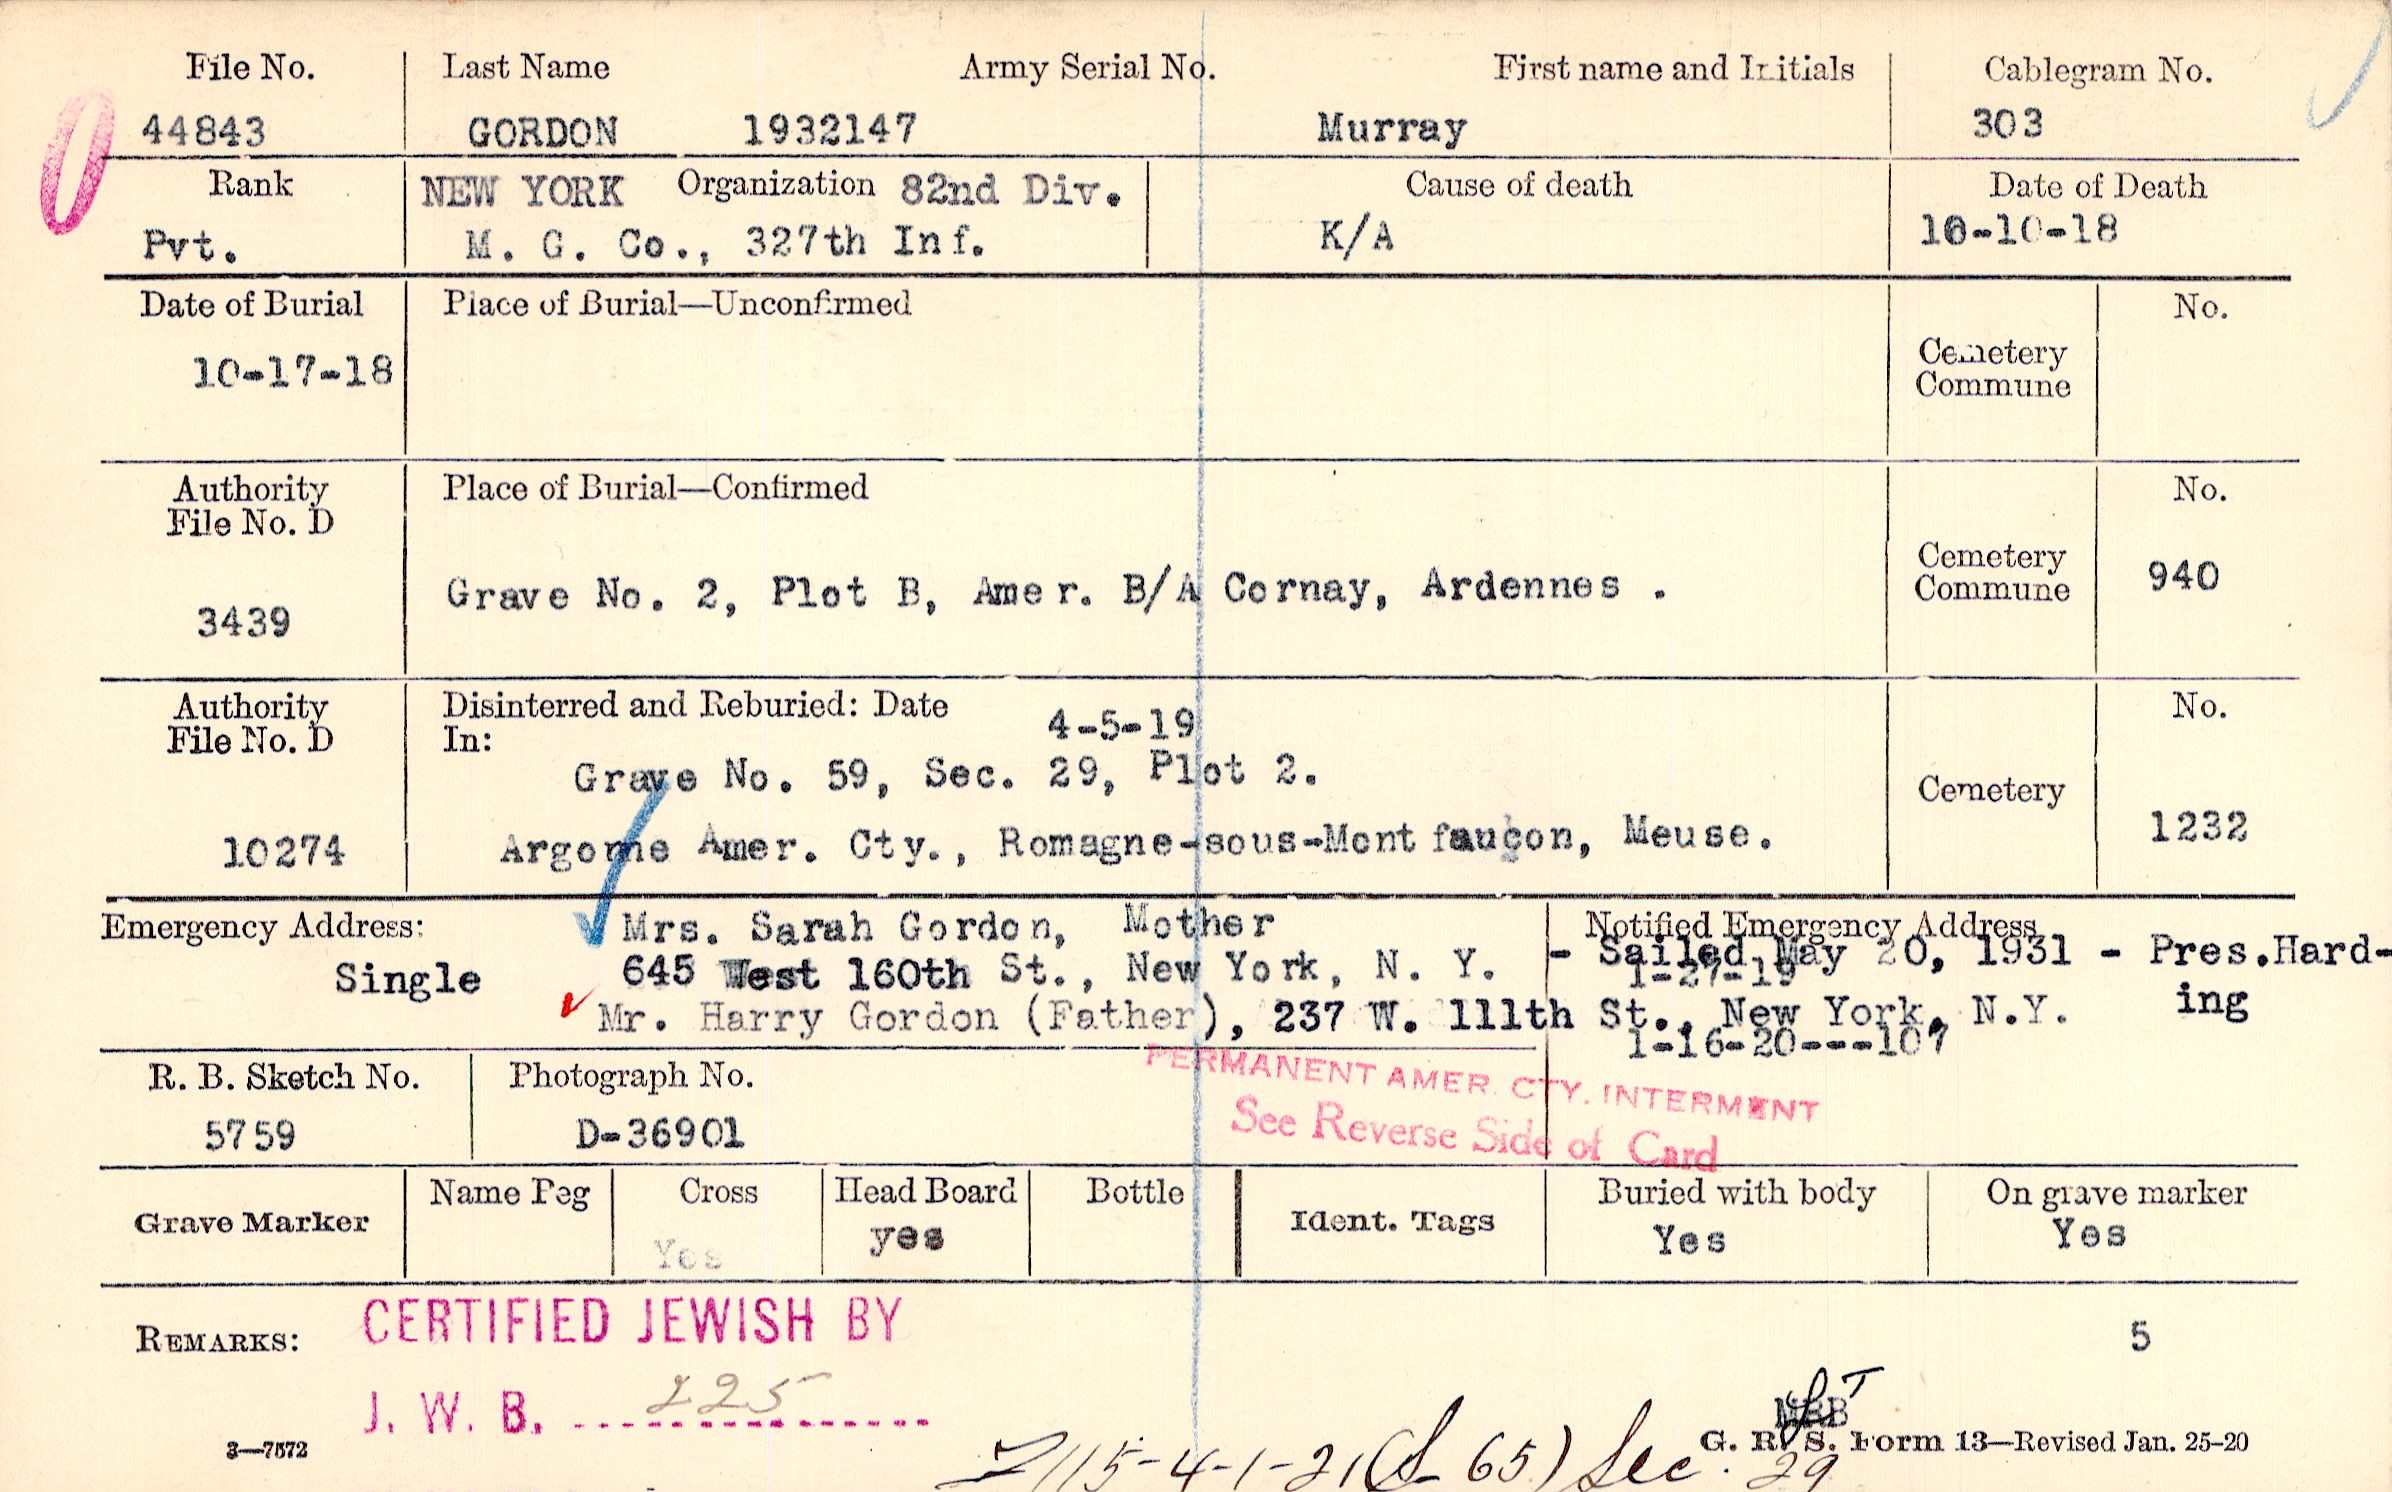 File No. Last Name Army Serial No. First name and Initials Cablegram No.
44843 GORDON 1932147 Murray 303
Rank NEW YORK Organization 82nd Div. Cause of death Date of Death
Pvt. M. G. Co., 327th Inf. K/A 10-10-18
Date of Burial Place of Burial—Unconfirmed No.
10-17-18 Cemetery
Commune
Authority Place of Burial—Confirmed No.
File No. D
Cemetery
Commune 940
3439 Grave No. 2, Plot B, Amer. B/A Cornay, Ardennes .
Authority Disinterred and Reburied: Date 4-5-19 No.
File No. D In:
Grave No. 59, Sec. 29, Plot 2. Cemetery
10274 Argonne Amer. Cty., Romagne-sous-Montfaucon, Meuse. 1232
Emergency Address: Mrs. Sarah Gordon, Mother Notified Emergency Address
Single 645 West 160th St., New York, N. Y. - Sailed May 20, 1931 - Pres.Hard-
1-27-19 ing
Mr. Harry Gordon (Father), 237 W. 111th St., New York, N.Y.
1-16-20---107
PERMANENT AMER. CTY. INTERMENT
See Reverse Side of Card
R. B. Sketch No. Photograph No.
5759 D-36901
Grave Marker Name Peg Cross Head Board Bottle Ident. Tags Buried with body On grave marker
Yes yes Yes Yes
REMARKS: CERTIFIED JEWISH BY 5
J. W. B. 225
3—7572 G. R. S. Form 13—Revised Jan. 25-20
115-4-1-21 65) Sec. 29